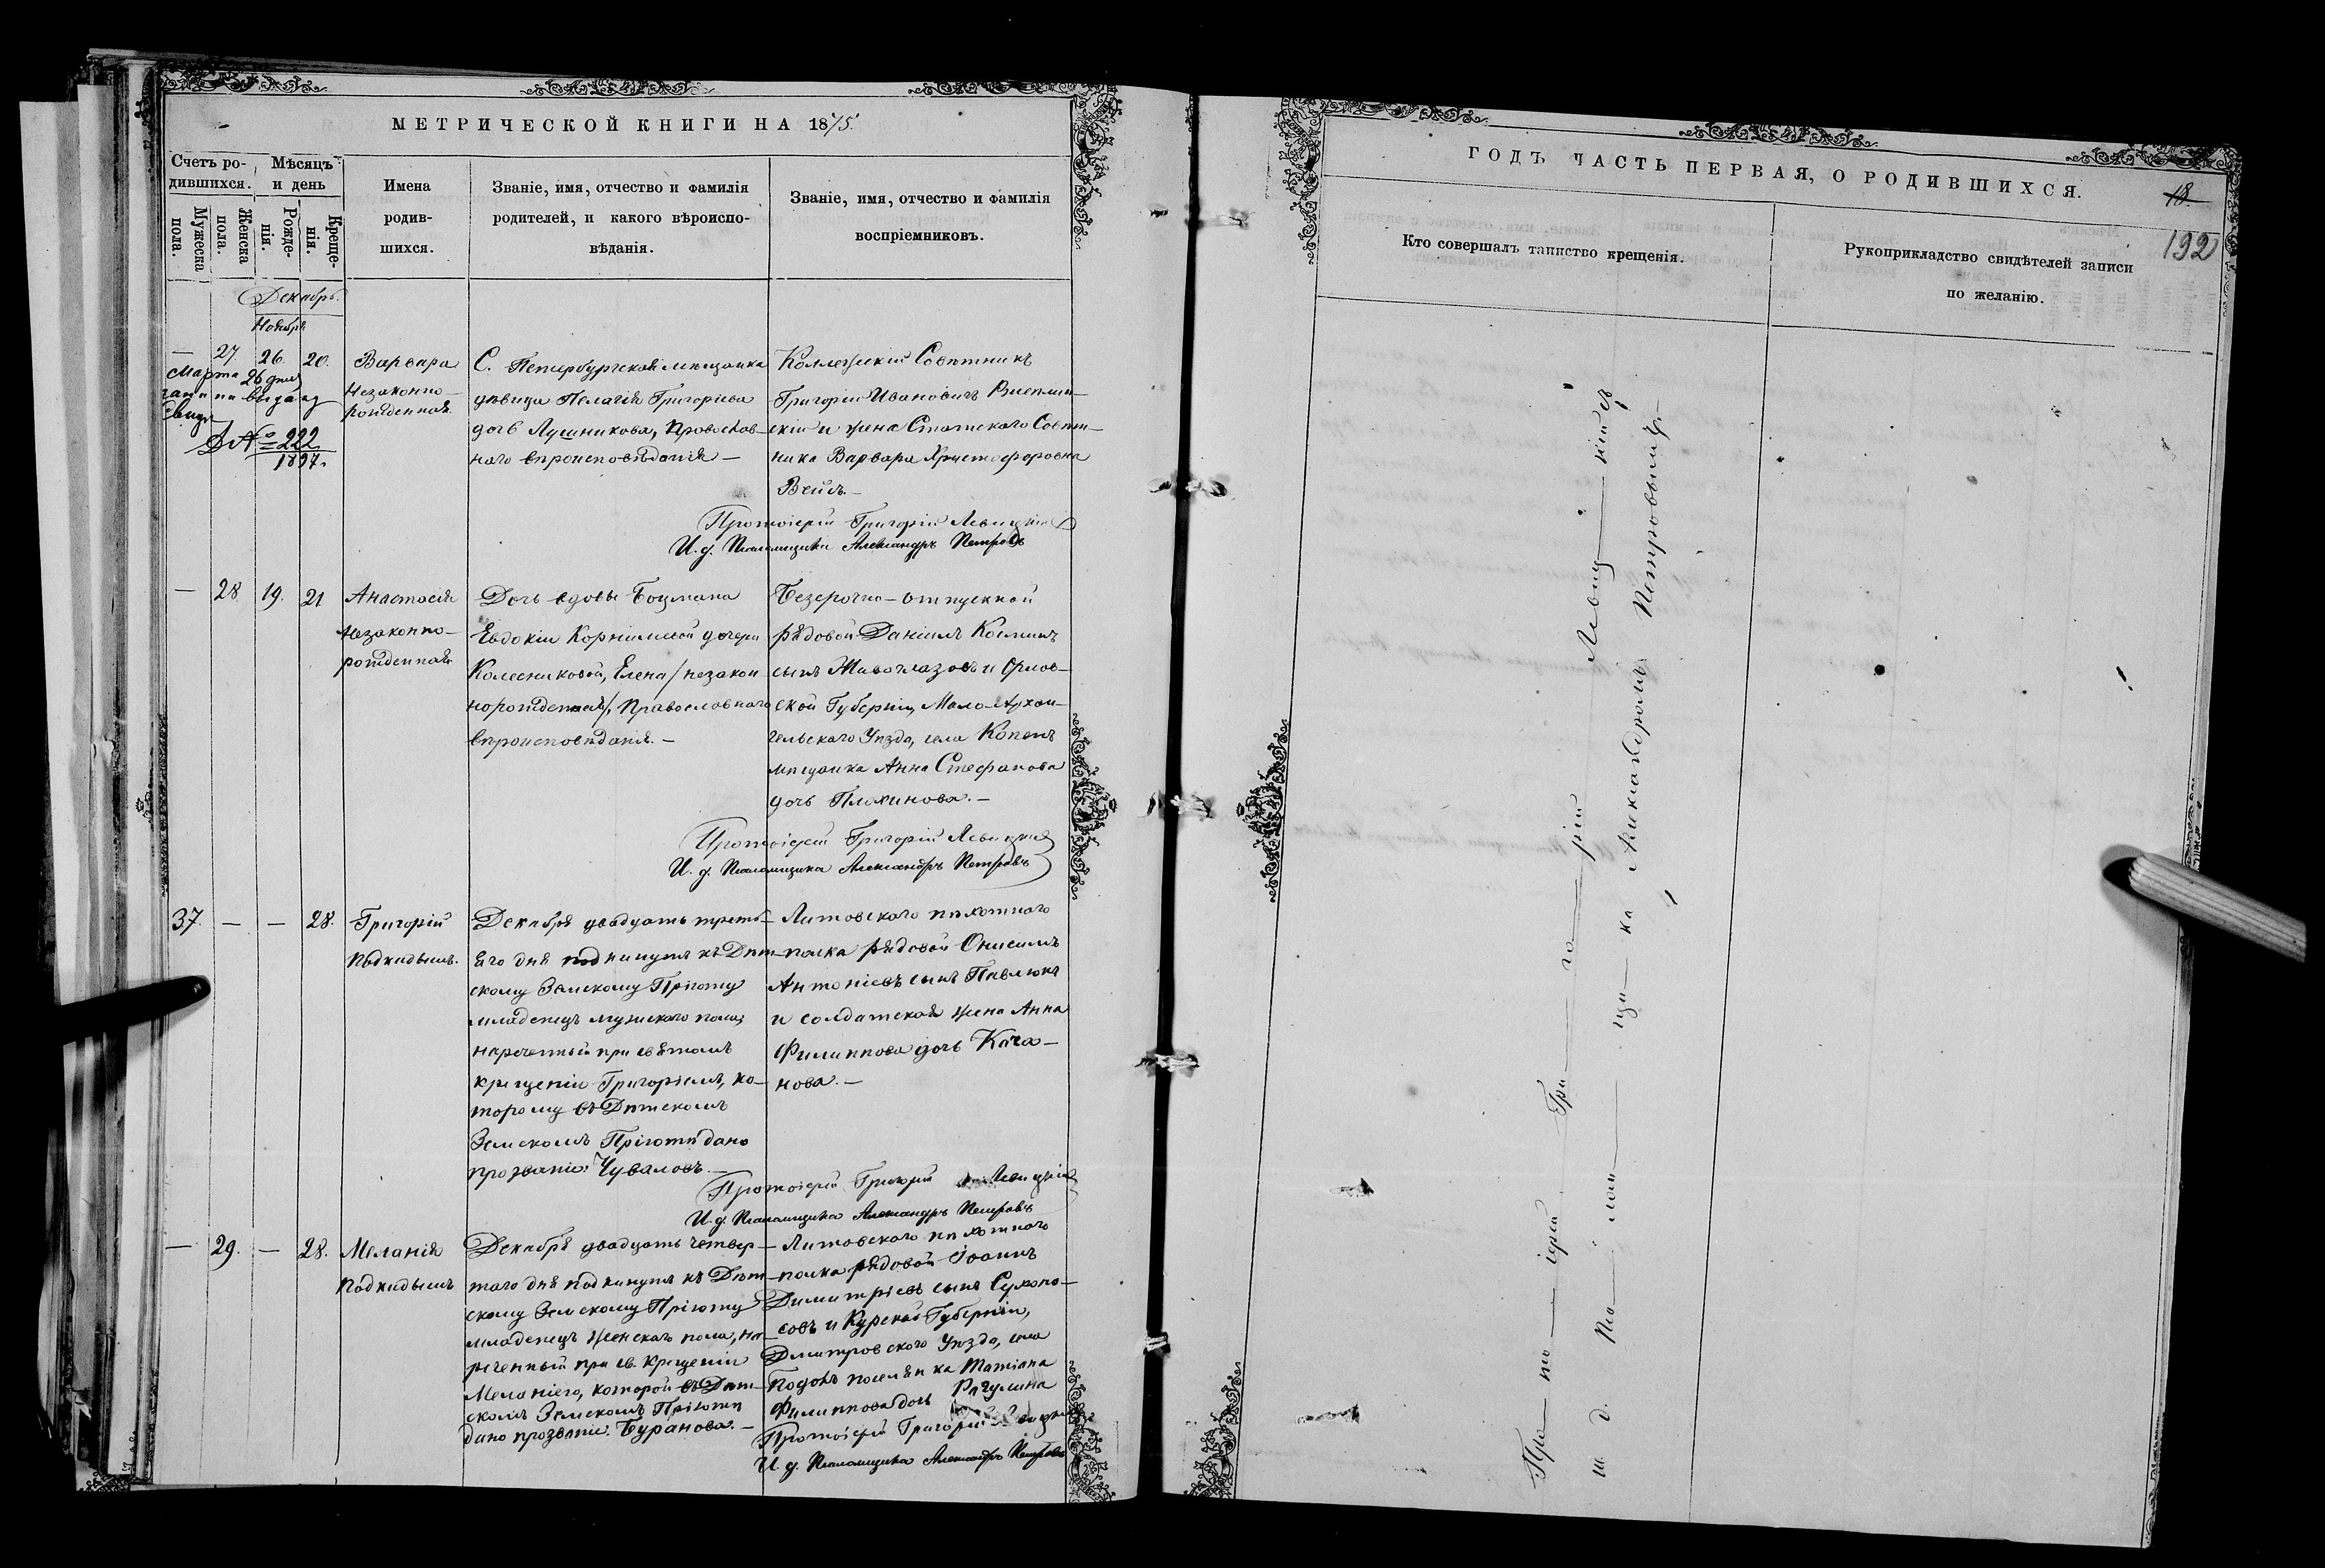 МЕТРИЧЕСКОЙ КНИГИ НА 1875.
Счетъ ро-
дившихся.
Мѣсяцъ
и день
Мужеска
пола.
Женска
пола.
Рожде-
нія.
Креще-
нія.
Имена
родив-
шихся.
Званіе, имя, отчество и фамилія
родителей, и какого вѣроиспо-
вѣданія.
Званіе, имя, отчество и фамилія
воспріемниковъ.
Декабрь.
Ноябрь
— 27. 26. 20.
Марта 26 дня
выдано
№ 222
1897.
Варвара
Незаконно-
рожденная.
С. Петербургская мѣщанка
дѣвица Пелагія Григорьева
дочь Лушникова, Православ-
наго вѣроисповѣданія —
Коллежскій Совѣтникъ
Григорій Ивановичъ
скій и жена Статскаго Совѣт-
ника Варвара Христофоровна
Вейль. —
Протоіерей Григорій Левицкій
И. д. Псаломщика Александръ Петровъ
— 28 19. 21
Анастасія
Незаконно-
рожденная
Дочь вдовы Боцмана
Евдокіи Корниліевой дочери
Колесниковой, Елена /незакон
норожденная/, Православнаго
вѣроисповѣданія. —
Безсрочно-отпускной
рядовой Даніилъ Косминъ
сынъ Живоглазовъ и Орлов-
ской Губерніи, Мало-Архан-
гельскаго Уѣзда, села Копенъ
мѣщанка Анна Стефанова
дочь Плохинова. —
Протоіерей Григорій Левицкій
И. д. Псаломщика Александръ Петровъ
37. — — 28.
Григорій
Подкидышъ.
Декабря двадцать треть-
яго дня подкинутъ къ Дѣт-
скому Земскому Пріюту
младенецъ мужскаго пола,
нареченный при святомъ
крещеніи Григоріемъ, ко-
торому въ Дѣтскомъ
Земскомъ Пріютѣ дано
прозваніе: Чуваловъ. —
Литовскаго пѣхотнаго
полка рядовой Онисимъ
Антоніевъ сынъ Павлюкъ
и солдатская жена Анна
Филиппова дочь Кача-
нова. —
Протоіерей Григорій Левицкій
И. д. Псаломщика Александръ Петровъ
— 29. — 28.
Меланія
Подкидышъ
Декабря двадцать четвер-
таго дня подкинутъ къ Дѣт-
скому Земскому Пріюту
младенецъ женскаго пола, на-
реченный при св. крещеніи
Меланіею, которой въ Дѣт-
скомъ Земскомъ Пріютѣ
дано прозваніе: Буранова. —
Литовскаго пѣхотнаго
полка рядовой Іоаннъ
Димитріевъ сынъ Сухоно-
совъ и Курской Губерніи,
Дмитровскаго Уѣзда, села
поселянка Татіана
Филиппова дочь
Протоіерей Григорій Левицкій
И. д. Псаломщика Александръ Петровъ
ГОДЪ ЧАСТЬ ПЕРВАЯ, О РОДИВШИХСЯ.
18.
192
Кто совершалъ таинство крещенія.
Рукоприкладство свидѣтелей записи
по желанію.
Про — то — іерей Гри — го — рій Левиц — кій съ
и. д. Пса — лом — щи — ка Александромъ Петровымъ. —